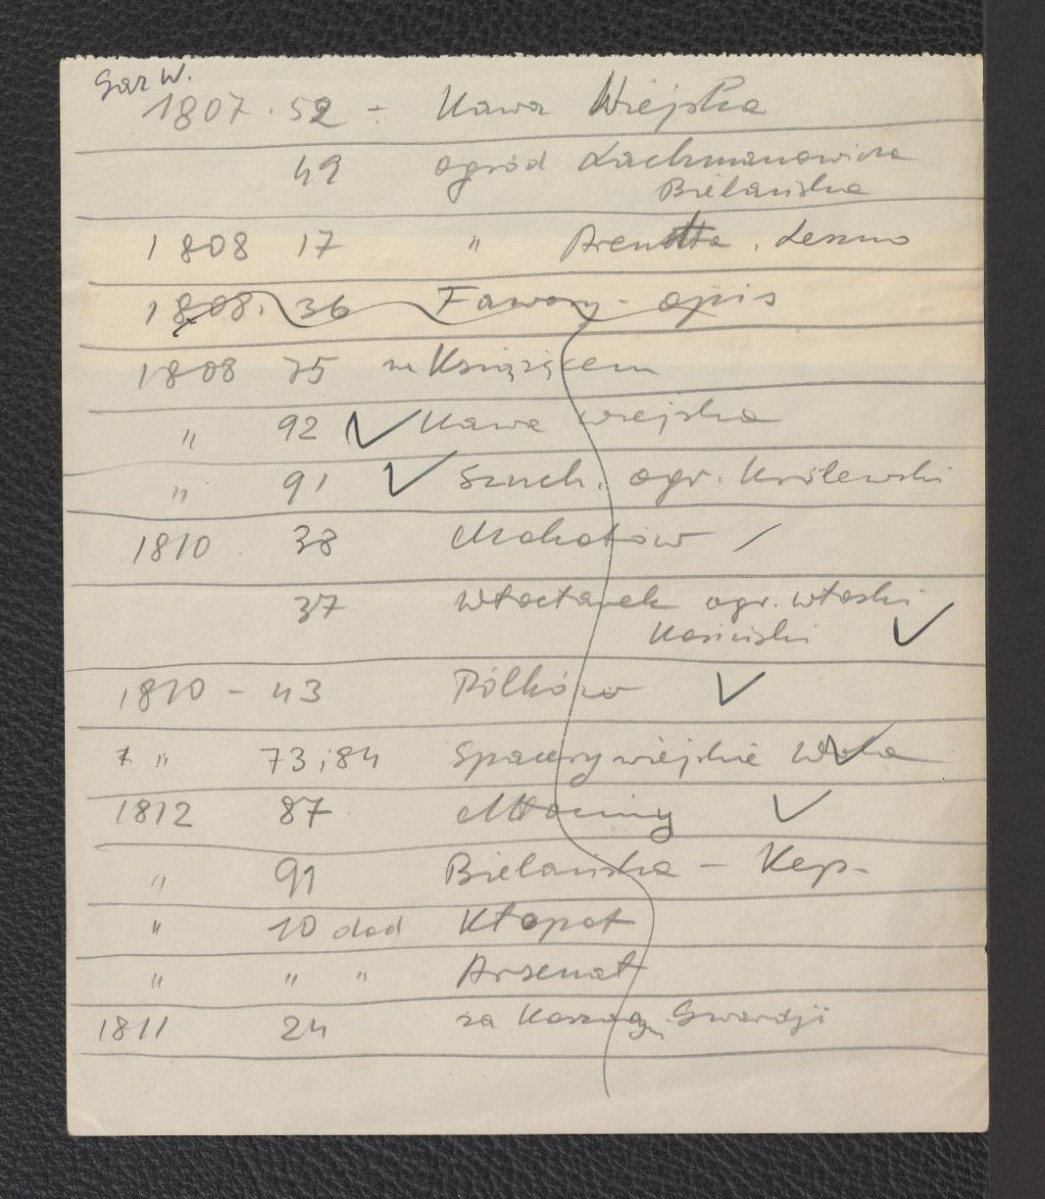 Gaz W.
1807 . 52 - Kawa Wiejska
49 ogród Lachmanowicza
Bielańska
1808 17 " Arendta . Leszno
1808. 36 Fawory - opis
1808 75 na Książęcem
" 92 ✓ Kawa wiejska
" 91 ✓ Szuch. ogr. Królewski
1810 38 Mokotów /
37 ogr. włoski
Kosiński ✓
1810 - 43 Pólków ✓
" 73 i 84 Spacery wiejskie Wola ✓
1812 87 Młociny ✓
" 91 Bielańska - Kęp.
" 10 dod Kłopot
" " " Arsenał
1811 24 za Gwardji